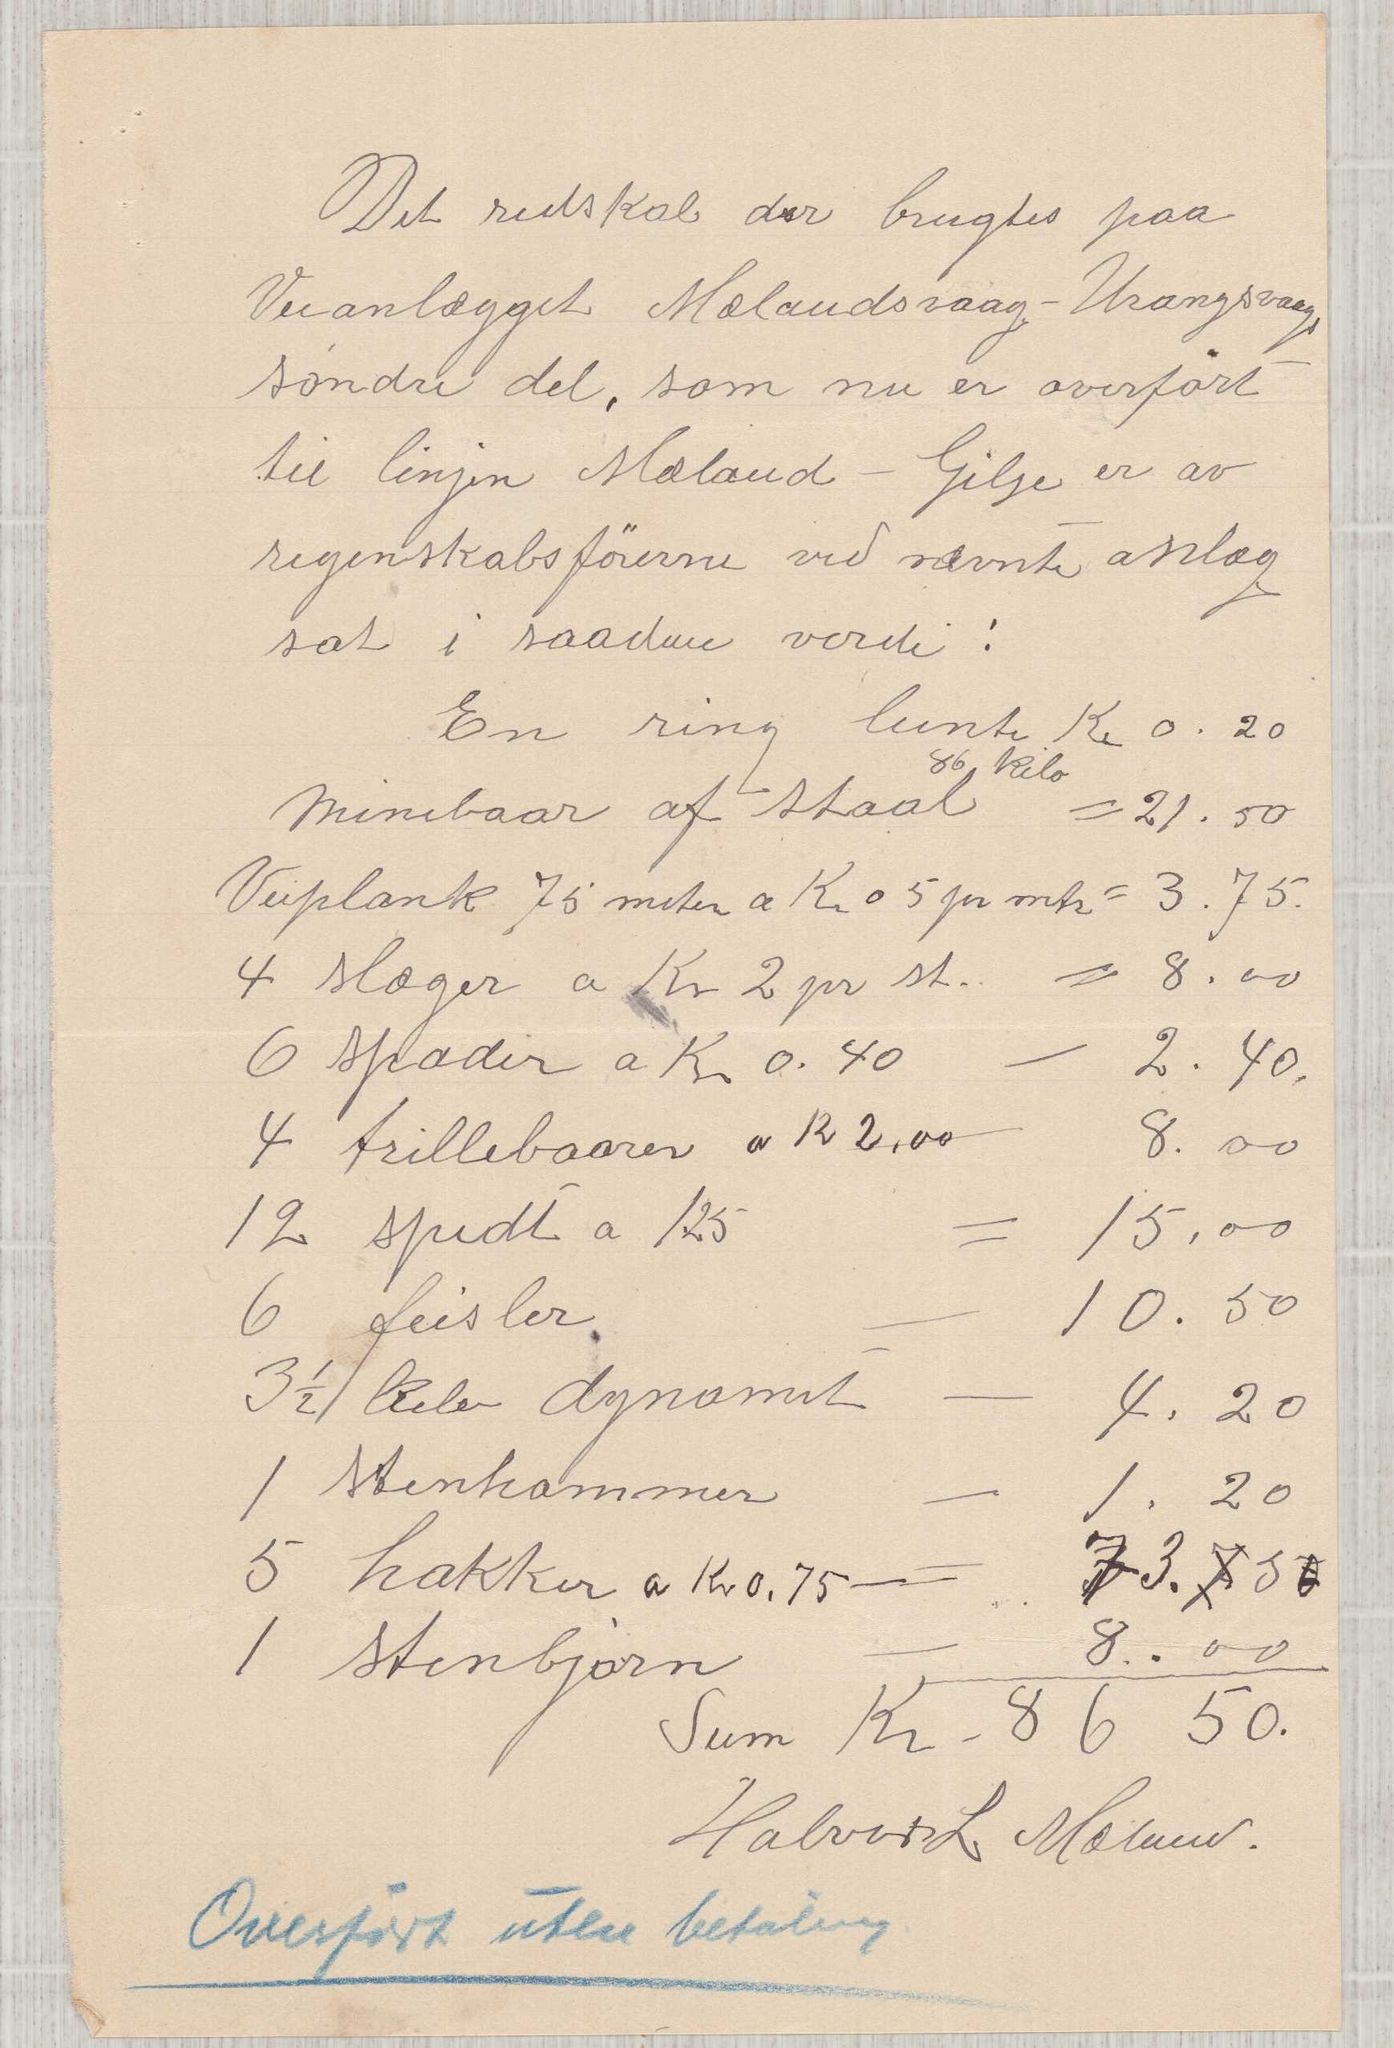 Det redskab der brugtes paa
Veianlægget Mælandsvaag - Urangsvaag
söndre del, som nu er overfört
til linjen Mæland - Gilje er av
regenskabsförerne ved nævnte anlæg
sat i saadan verdi:
En ring lunte Kr 0.20
86 kilo
Minebaar af staal = 21.50
Veiplank 75 meter a Kr 0 5 pr mtr = 3.75.
4 slæger a Kr 2 pr st. = 8.00
6 spader a Kr 0.40 — 2.40.
4 trillebaarer a Kr 2,00 — 8.00
12 spedt a 125 = 15,00
6 feisler — 10.50
3½ kilo dynamit — 4.20
1 stenhammer — 1.20
5 hakker a Kr 0.75 — = 3.
1 stenbjörn — 8.00
Sum Kr - 86 50.
Halvor L Mæland.
Overfört uten betaling